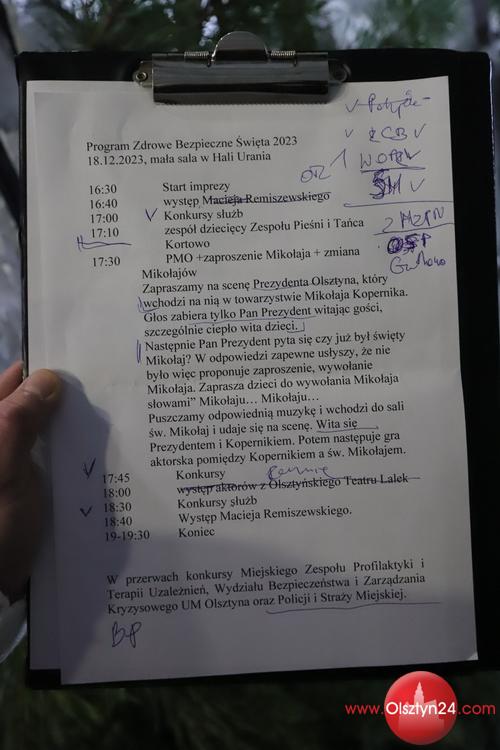 Program Zdrowe Bezpieczne Święta 2023
18.12.2023, mała sala w Hali Urania
v Policja
v ŻCB v
WOPR v
SM v
OSP
16:30 Start imprezy
16:40 występ Macieja Remiszewskiego
17:00 v Konkursy służb
17:10 zespół dziecięcy Zespołu Pieśni i Tańca
Kortowo
17:30 PMO +zaproszenie Mikołaja + zmiana
Mikołajów
Zapraszamy na scenę Prezydenta Olsztyna, który
wchodzi na nią w towarzystwie Mikołaja Kopernika.
Głos zabiera tylko Pan Prezydent witając gości,
szczególnie ciepło wita dzieci.
Następnie Pan Prezydent pyta się czy już był święty
Mikołaj? W odpowiedzi zapewne usłyszy, że nie
było więc proponuje zaproszenie, wywołanie
Mikołaja. Zaprasza dzieci do wywołania Mikołaja
słowami” Mikołaju… Mikołaju…
Puszczamy odpowiednią muzykę i wchodzi do sali
św. Mikołaj i udaje się na scenę. Wita się
Prezydentem i Kopernikiem. Potem następuje gra
aktorska pomiędzy Kopernikiem a św. Mikołajem.
v 17:45 Konkursy
18:00 występ aktorów z Olsztyńskiego Teatru Lalek
v 18:30 Konkursy służb
18:40 Występ Macieja Remiszewskiego.
19-19:30 Koniec
W przerwach konkursy Miejskiego Zespołu Profilaktyki i
Terapii Uzależnień, Wydziału Bezpieczeństwa i Zarządzania
Kryzysowego UM Olsztyna oraz Policji i Straży Miejskiej.
www.Olsztyn24.com